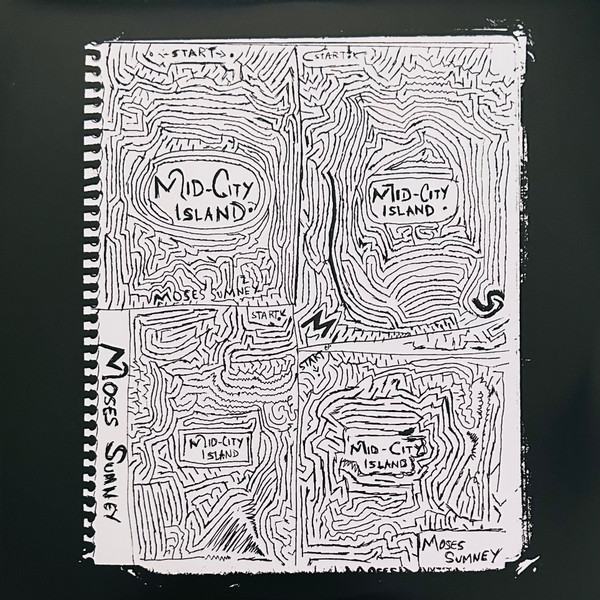 START
MID-CITY
ISLAND
MOSES SUMNEY
START
MID-CITY
ISLAND
M
S
START
MID-CITY
ISLAND
MOSES SUMNEY
START
MID-CITY
ISLAND
MOSES
SUMNEY